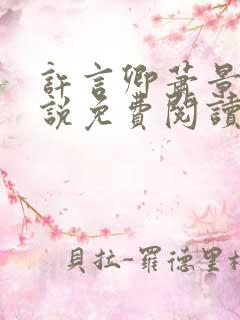 許言卿蕭景
說免費閱讀
貝拉-羅德里格